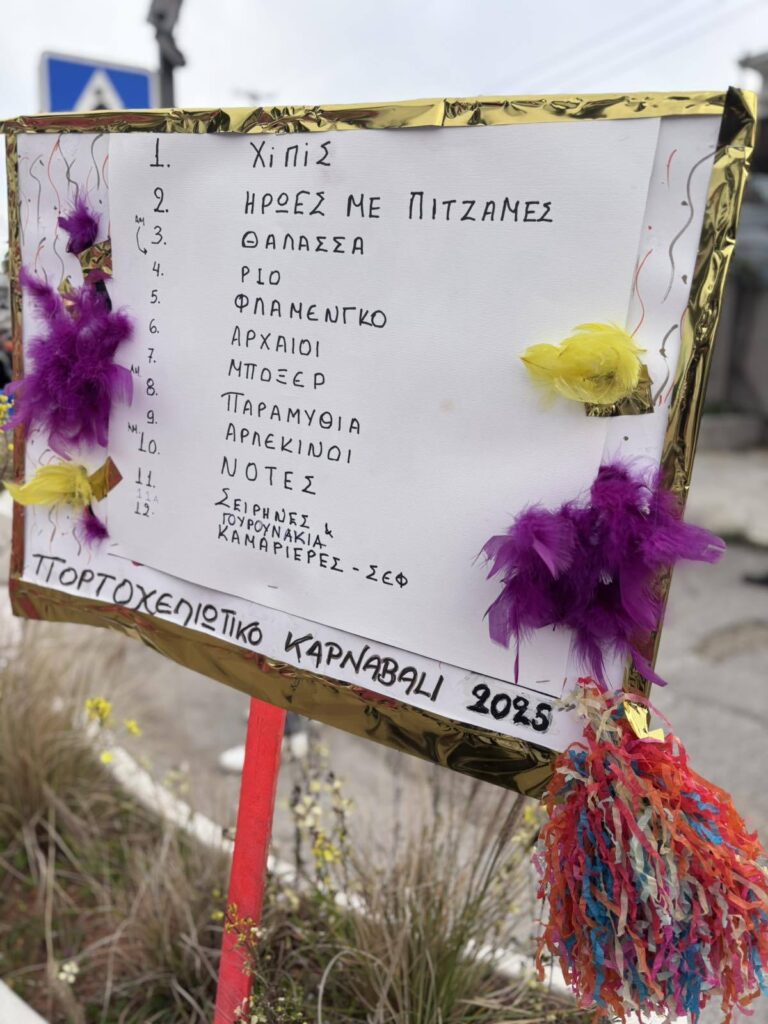 1. ΧΙΠΙΣ
2. ΗΡΩΕΣ ΜΕ ΠΙΤΖΑΜΕΣ
3. ΘΑΛΑΣΣΑ
4. ΡΙΟ
5. ΦΛΑΜΕΝΓΚΟ
6. ΑΡΧΑΙΟΙ
7. ΜΠΟΞΕΡ
8. ΠΑΡΑΜΥΘΙΑ
9. ΑΡΛΕΚΙΝΟΙ
10. ΝΟΤΕΣ
11. ΣΕΙΡΗΝΕΣ &
11Α ΓΟΥΡΟΥΝΑΚΙΑ
12. ΚΑΜΑΡΙΕΡΕΣ - ΣΕΦ
ΠΟΡΤΟΧΕΛΙΩΤΙΚΟ ΚΑΡΝΑΒΑΛΙ 2025